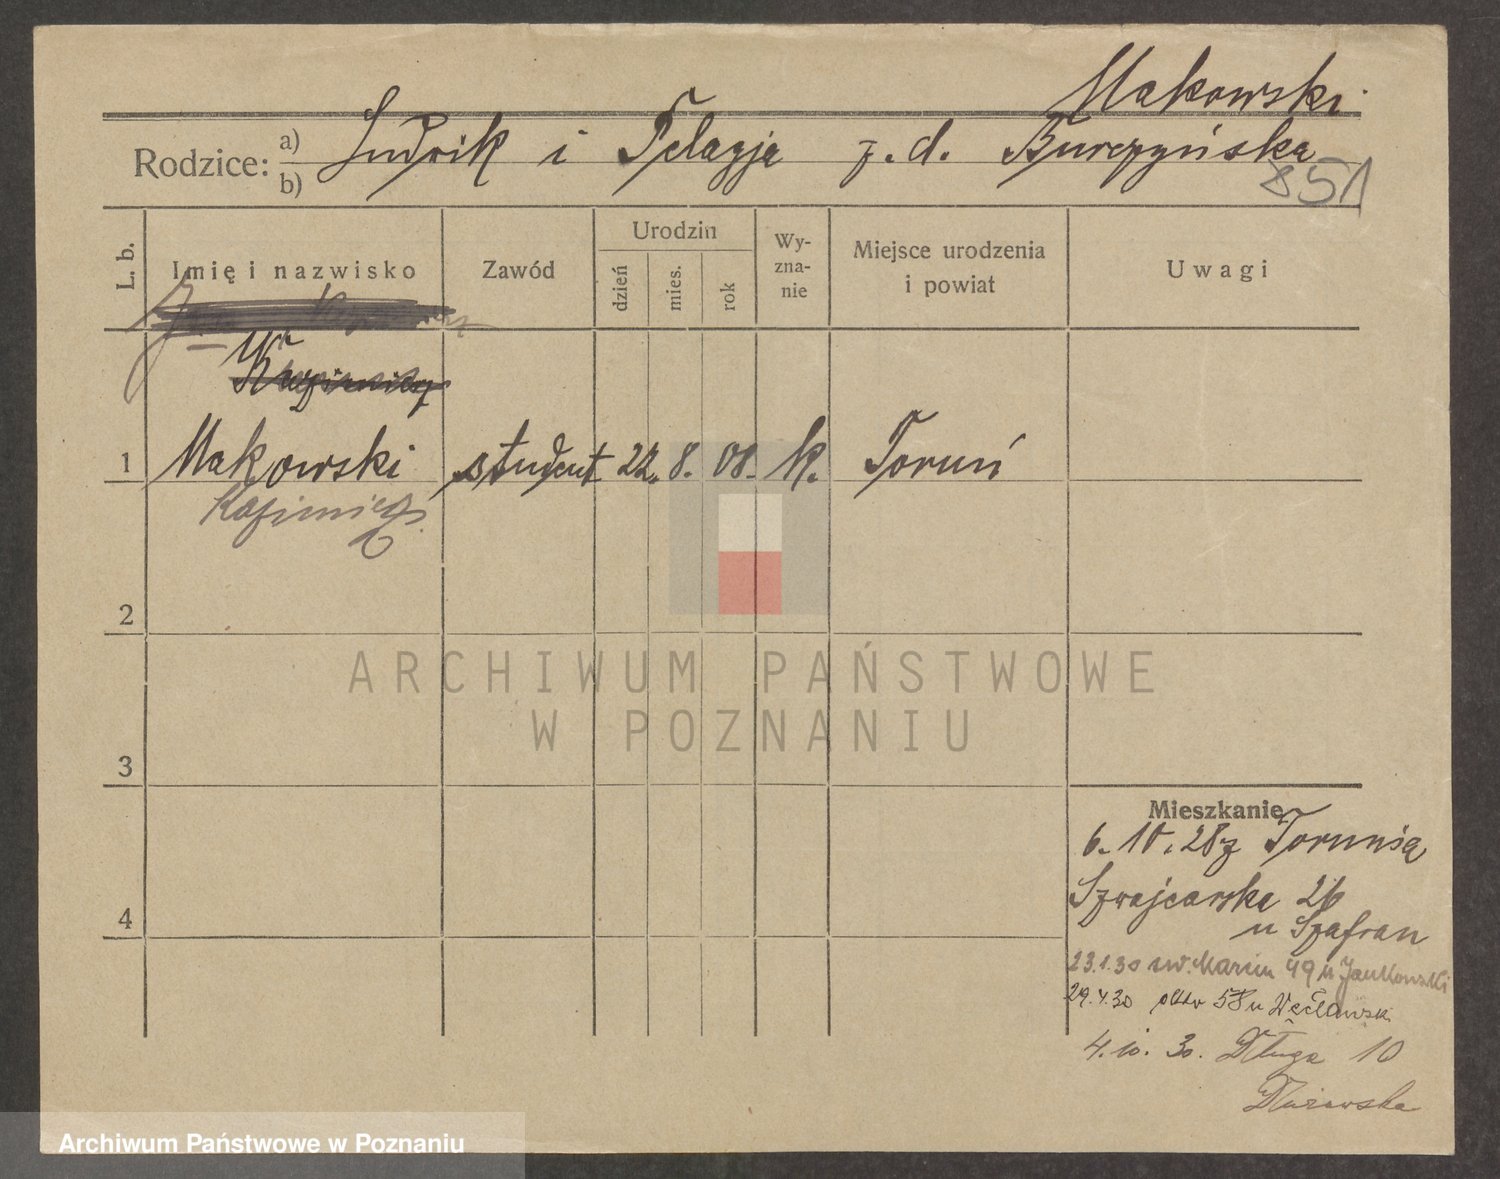 Makowski
Rodzice: a) b) Ludwik i Pelagja z. d. Burczyńska
851
L. b. Imię i nazwisko Zawód Urodzin dzień mies. rok Wy-zna-nie Miejsce urodzenia i powiat Uwagi
Kazimierz
1 Makowski student 22. 8. 08. k. Toruń
Kazimierz
2
3
4
Mieszkanie
6. 10. 28 z Torunia
Szwajcarska 26
u Szafran
23.1.30 św. Marcin 49 u Jankowski
29.4.30 58 u Węcławski
4. 10. 30. Długa 10
ARCHIWUM PAŃSTWOWE
W POZNANIU
Archiwum Państwowe w Poznaniu